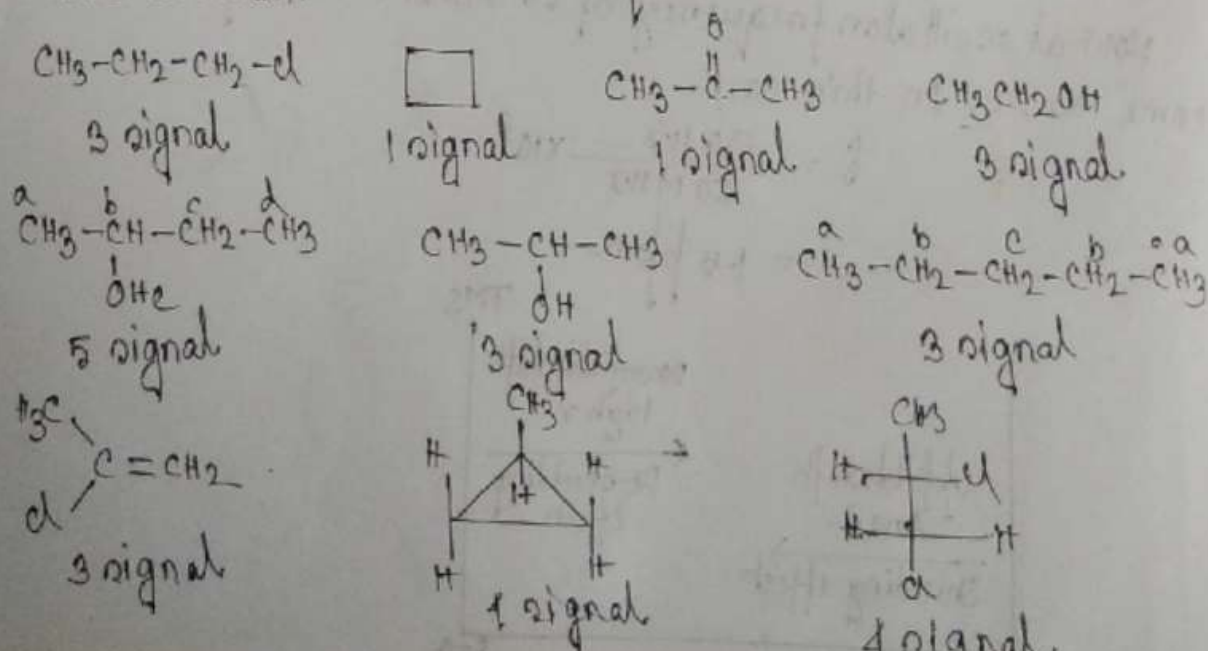 CH3-CH2-CH2-Cl
3 signal
1 signal
O
CH3-C-CH3
1 signal
CH3CH2OH
3 signal
a b c d
CH3-CH-CH2-CH3
OHe
5 signal
CH3-CH-CH3
OH
3 signal
a b c b a
CH3-CH2-CH2-CH2-CH3
3 signal
H3C
C=CH2
Cl
3 signal
CH3
H H
H
H H
4 signal
CH3
H Cl
H H
Cl
4 signal